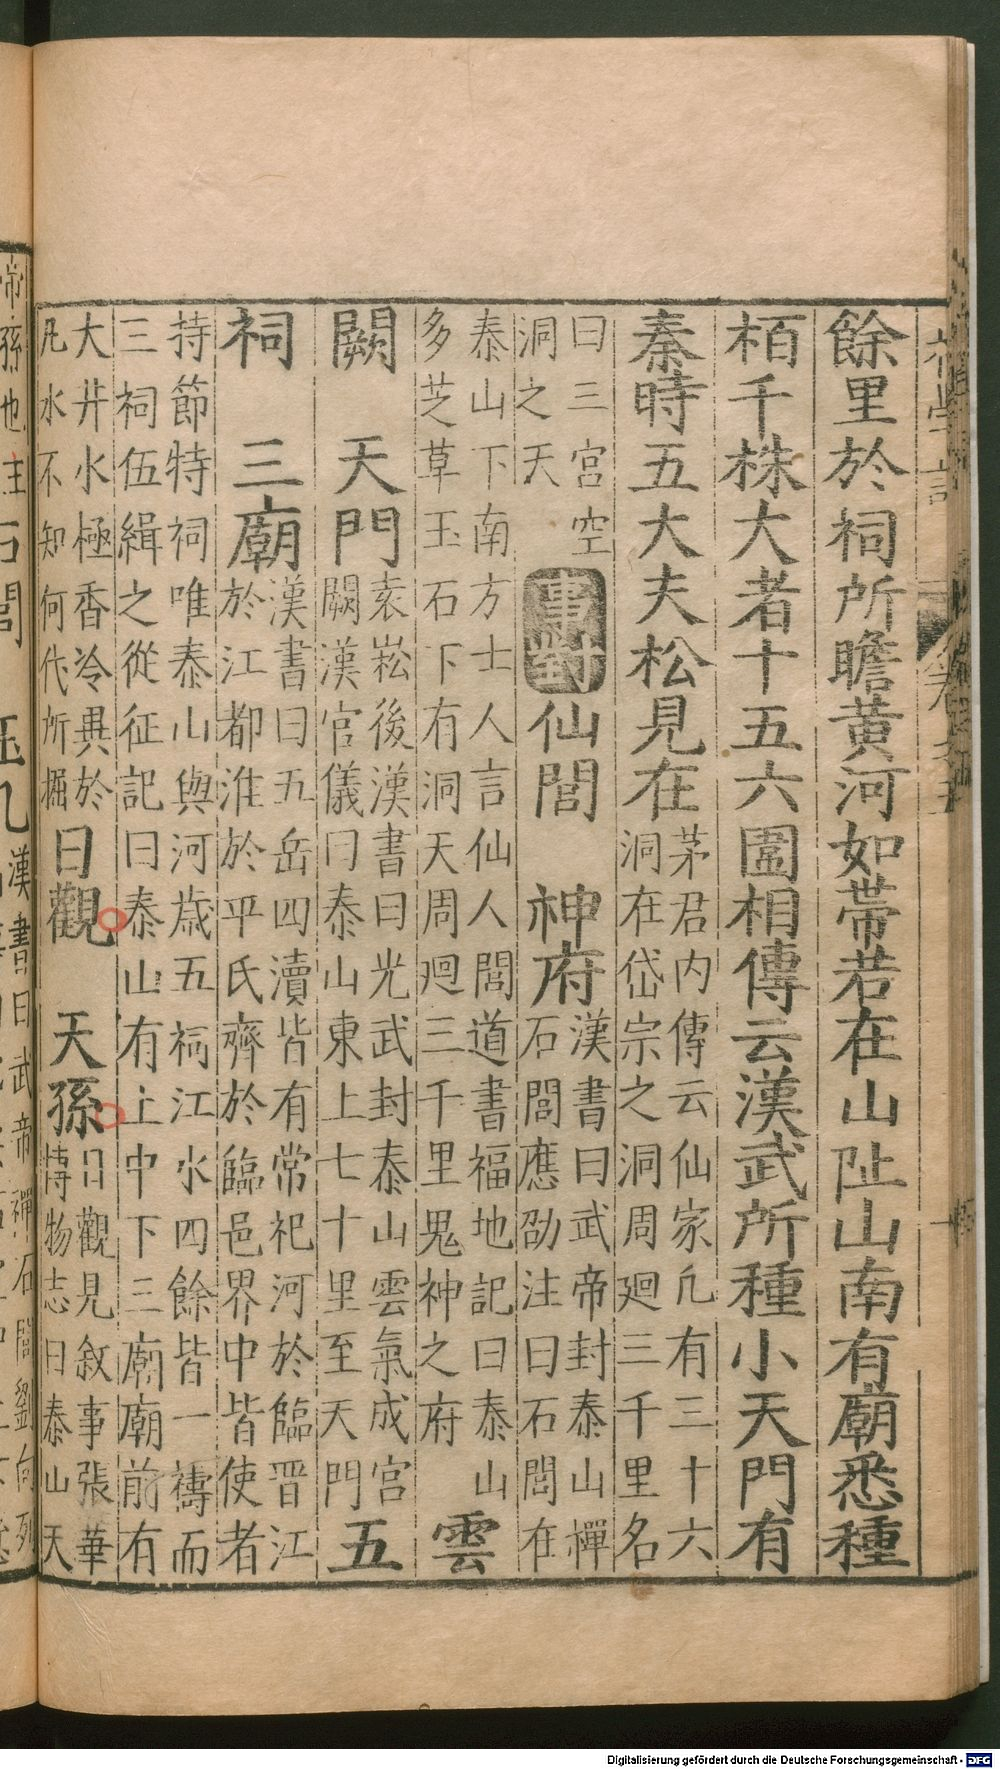 餘里於祠所瞻黃河如帶若在山阯山南有廟悉種
栢千株大者十五六圍相傳云漢武所種小天門有
秦時五大夫松見在
茅君内傳云仙家凢有三十六
洞在岱宗之洞周廻三千里名
曰三宮空
洞之天
事對
仙閭 神府
漢書曰武帝封泰山禪
石閭應劭注曰石閭在
泰山下南方士人言仙人閭道書福地記曰泰山
多芝草玉石下有洞天周廻三千里鬼神之府
雲
闕 天門
袁崧後漢書曰光武封泰山雲氣成宮
闕漢官儀曰泰山東上七十里至天門
五
祠 三廟
漢書曰五岳四瀆皆有常祀河於臨晋江
於江都淮於平氏齊於臨邑界中皆使者
持節特祠唯泰山與河歳五祠江水四餘皆一禱而
三祠伍緝之從征記曰泰山有上中下三廟廟前有
大井水極香冷異於
凡水不知何代所掘
日觀 天孫
日觀見敘事張華
博物志曰泰山天
帝孫也主
石閭
漢書曰武帝禪石閭劉向列
Digitalisierung gefördert durch die Deutsche Forschungsgemeinschaft - DFG